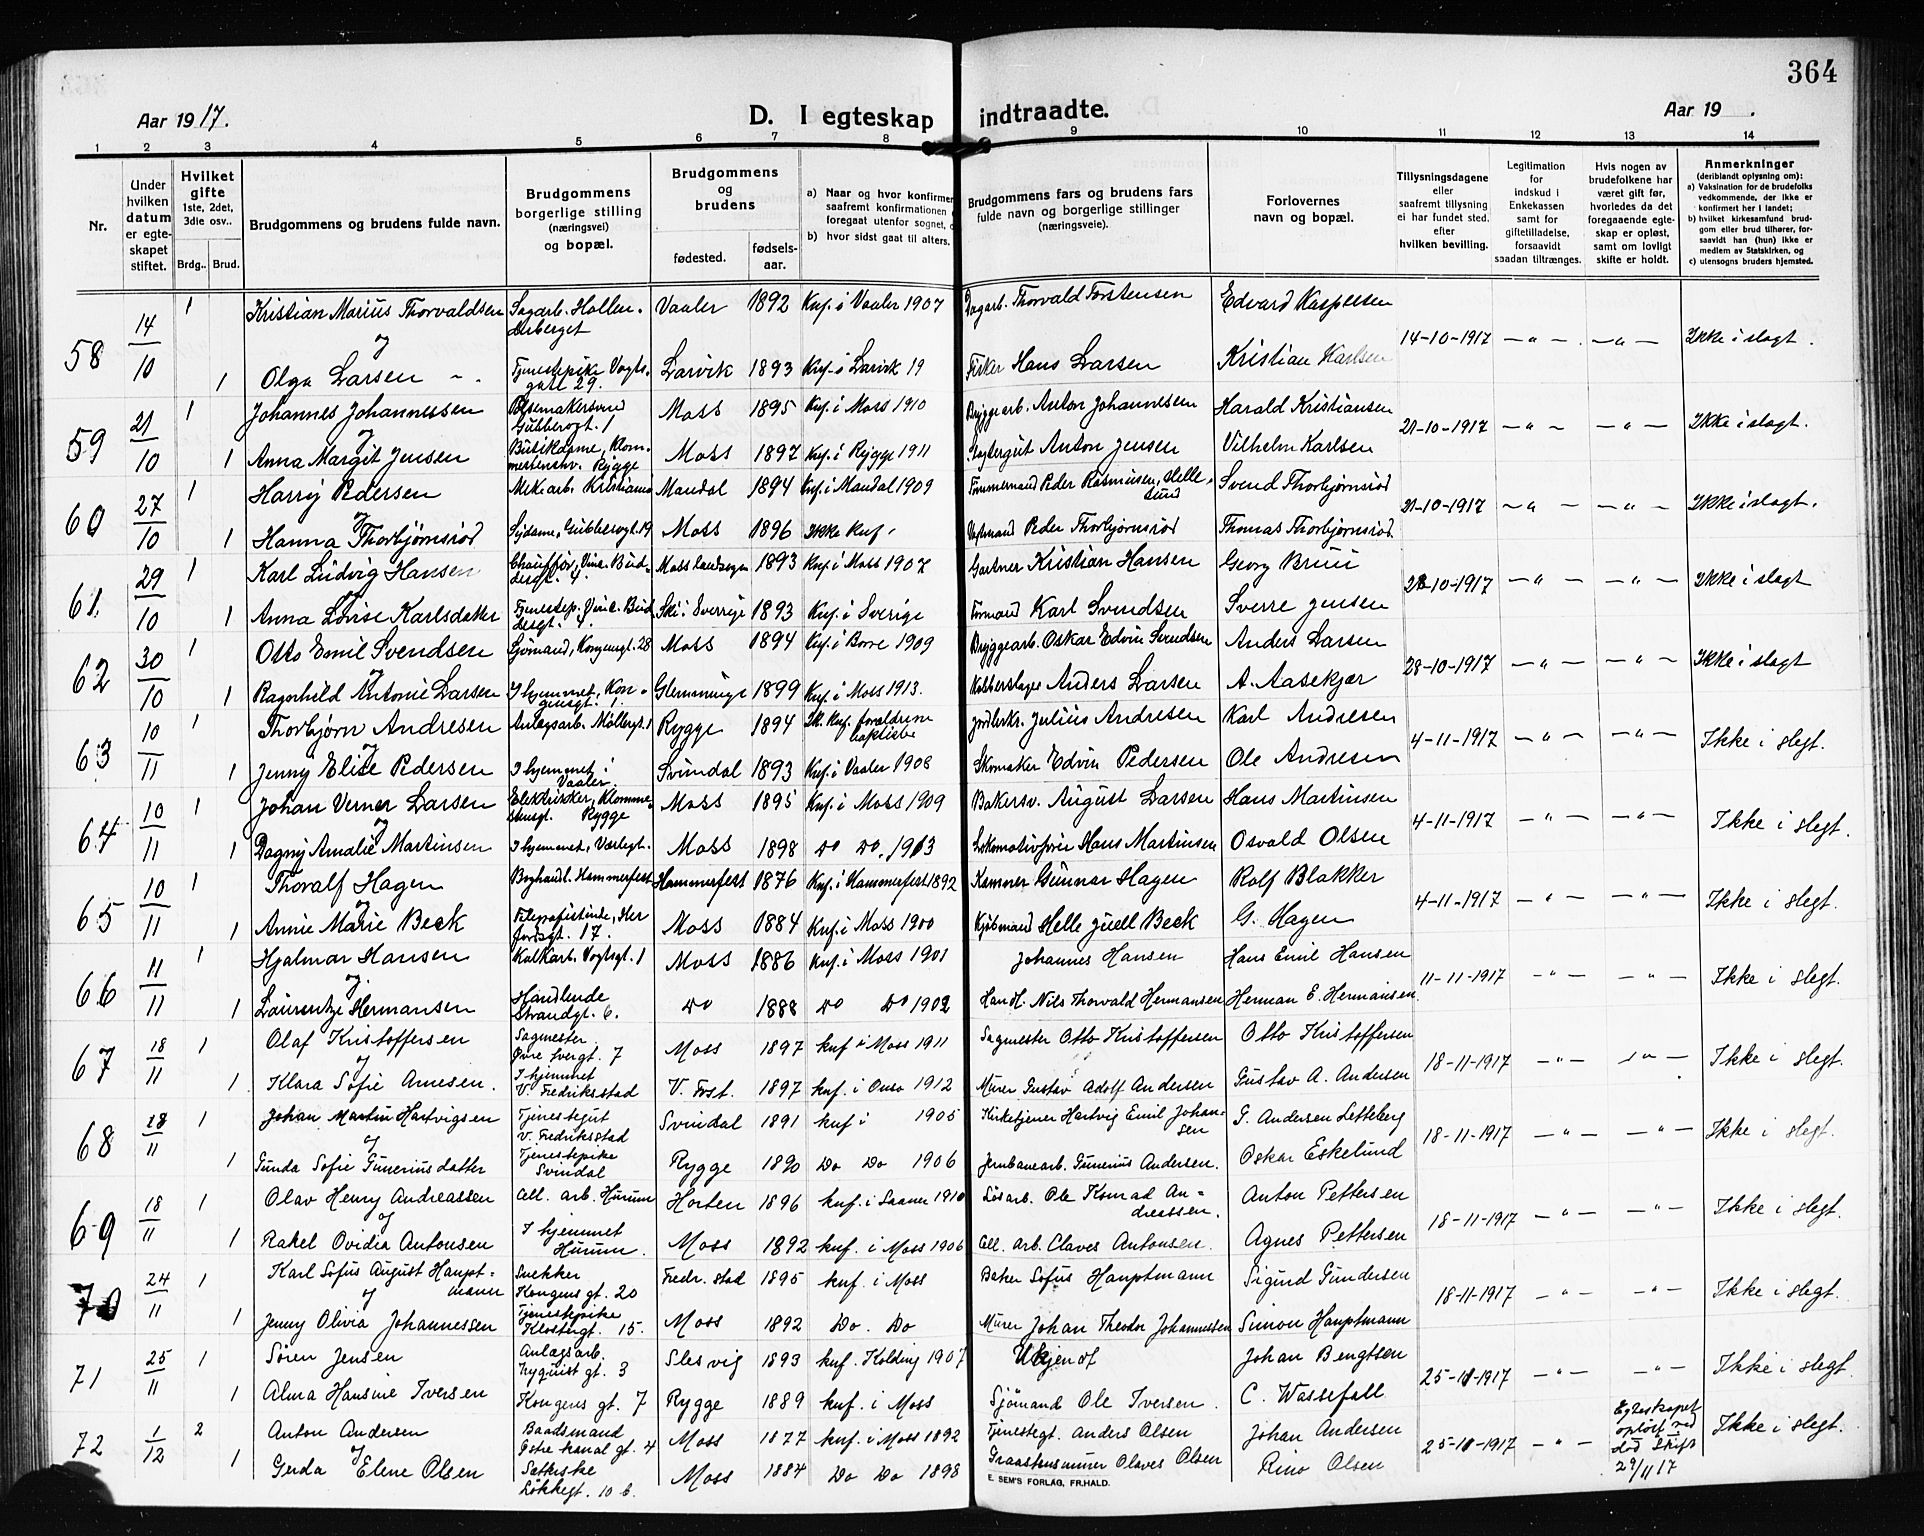 364
Aar 1917.
D. I egteskap indtraadte.
Aar 19 .
1 2 3 4 5 6 7 8 9 10 11 12 13 14
Nr.
Under hvilken datum er egteskapet stiftet.
Hvilket gifte 1ste, 2det, 3die osv..
Brdg.. Brud.
Brudgommens og brudens fulde navn.
Brudgommens borgerlige stilling (næringsvei) og bopæl.
Brudgommens og brudens
fødested. fødsels-aar.
a) Naar og hvor konfirmer
saafremt konfirmationen
foregaat utenfor sognet,
b) hvor sidst gaat til alters.
Brudgommens fars og brudens fars fulde navn og borgerlige stillinger (næringsveie).
Forlovernes navn og bopæl.
Tillysningsdagene eller saafremt tillysning ei har fundet sted. efter hvilken bevilling.
Legitimation for indskud i Enkekassen samt for giftetilladelse, forsaavidt saadan tiltrænges.
Hvis nogen av brudefolkene har været gift før, hvorledes da det foregaaende egteskap er opløst, samt om lovligt skifte er holdt.
Anmerkninger (deriblandt oplysning om): a) Vaksination for de brudefolks vedkommende, der ikke er konfirmert her i landet; b) hvilket kirkesamfund brudgom eller brud tilhører, forsaavidt han (hun) ikke er medlem av Statskirken, og c) utensogns bruders hjemsted.
58 14/10 1 Kristian Marius Thorvaldsen Sagarb. Hollenderberget Vaaler 1892 Knf. i Vaaler 1907 Dagarb. Thorvald Torstensen Edvard Kaspersen 14-10-1917 — " — — " — Ikke i slagt.
og
1 Olga Larsen Tjenestepike Vogtsgatt 29. Larvik 1893 Knf. i Larvik 19 Hans Larsen Kristian Karlsen
59 21/10 1 Johannes Johannessen Gubberogt. 1 Moss 1895 Knf. i Moss 1910 Bryggearb. Anton Johannesen Harald Kristiansen 21-10-1917 — " — — " — Ikke i slagt.
og
1 Anna Margit Jensen Butikdame, Rygge Moss 1897 Knf. i Rygge 1911 Anton Jensen Vilhelm Karlsen
60 27/10 1 Harry Pedersen Kristiania Mandal 1894 Knf. i Mandal 1909 Tømmermand Peder Rasmussen, Hellesund Svend Thorbjørnsrød 21-10-1917 — " — — " — Ikke i slagt.
og
1 Hanna Thorbjørnsrød Sydame, Gubberogt. 19 Moss 1896 Ikke knf. Peder Thorbjørnsrød Thomas Thorbjørnsrød
61. 29/10 1 Karl Ludvig Hansen Chauffør, Vinc. Buddesgt. 4. Moss landsogn 1893 Knf. i Moss 1907 Gartner Kristian Hansen Georg Bruu 28-10-1917 — " — — " — Ikke i slagt
1 Anna Lovise Karlsdatter Tjenestep. Vinc. Buddesgt. 4. Ski i Sverrige 1893 Knf. i Sverige Formand Karl Svendsen Sverre Jensen
62 30/10 1 Otto Emil Svendsen Sjømand, Kongensgt. 28 Moss 1894 Knf. i Borre 1909 Bryggearb. Oskar Edvin Svendsen Anders Larsen 28-10-1917 — " — — " — Ikke i slagt
og
1 Ragnhild Antonie Larsen I hjemmet, Kongensgt. 1. Glemminge 1899 Knf. i Moss 1913. Kobberslager Anders Larsen A. Aasekjær
63 10/11 1 Thorbjørn Andresen Anlagsarb. Møllergt. 1 Rygge 1894 Ik. knf. forældrene baptister Julius Andresen Karl Andresen 4-11-1917 — " — — " — Ikke i slegt.
og
1 Jenny Elise Pedersen I hjemmet i Vaaler Svindal 1893 Knf. i Vaaler 1908 Skomaker Edvin Pedersen Ole Andresen
64 10/11 1 Johan Verner Larsen Elektriker, Rygge Moss 1895 Knf. i Moss 1909 Bakersv. August Larsen Hans Martinsen 4-11-1917 — " — — " — Ikke i slegt.
og
1 Dagny Amalie Martinsen I hjemmet, Værlegt. Moss 1898 Do Do. 1913 Lokomotivfører Hans Martinsen Osvald Olsen
65 10/11 1 Thoralf Hagen Boghandl. Hammerfest Hammerfest 1876 Knf. i Hammerfest 1892 Kæmner Gunnar Hagen Rolf Blakker 4-11-1917 — " — — " — Ikke i slegt.
og
1 Annie Marie Beck Telegrafistinde, Herfordsgt. 17. Moss 1884 Knf. i Moss 1900 Kjøbmand Helle Juell Beck G. Hagen
66 11/11 1 Hjalmar Hansen Kalkarb. Vogtsgt. 1 Moss 1886 Knf. i Moss 1901 Johannes Hansen Hans Emil Hansen 11-11-1917 — " — — " — Ikke i slegt.
og
1 Laurentze Hermansen Handlende Strandgt. 6. Do 1888 Do Do 1902 Handl. Nils Thorvald Hermansen Herman E. Hermansen
67 18/11 1 Olaf Kristoffersen Sagmester Øvre tvergt. 7 Moss 1897 knf i Moss 1911 Sagmester Otto Kristoffersen Otto Kristoffersen 18-11-1917 — " — — " — Ikke i slegt.
og
1 Klara Sofie Arnesen. I hjemmet V. Fredriksstad V. Frst. 1897 knf. i Onsø 1912 Murer Gustav Adolf Andersen Gustav A. Andersen
68 18/11 1 Johan Martin Hartvigsen Tjenestegut V. Fredriksstad Svindal 1891 knf i 1905 Kirketjener Hartvig Emil Johansen G. Andersen Letteberg 18-11-1917 — " — — " — Ikke i slegt.
og
1 Gunda Sofie Guneriusdatter Tjenestepike Svindal Rygge 1890 Do Do 1906 Jernbanearb. Gunerius Andersen. Oskar Eskelund
69 18/11 1 Olav Henry Andreassen Cell. arb. Hurum Horten 1896 knf. i Saaner 1910 Løsarb. Ole Konrad Andreassen. Anton Pettersen 18-11-1917 — " — — " — Ikke i slegt.
og
1 Rakel Ovidia Antonsen I hjemmet Hurum. Moss 1892 knf. i Moss 1906 Cell. arb. Claves Antonsen. Agnes Pettersen
70 24/11 1 Karl Sofus August Hauptmann Snekker Kongens gt. 20 Fredr.stad 1895 knf. i Moss Baker Sofus Hauptmann Sigurd Gundersen 18-11-1917 — " — — " — Ikke i slegt.
og
1 Jenny Olivia Johannessen Tjenestepike Klostergt. 15. Moss 1892 Do. Do Murer Johan Theodor Johannessen Simon Hauptmann
71 25/11 1 Søren Jensen Anlagsarb. Nyquist gt. 3 Slesvig 1893 knf. Kolding 1907 Ukjendt Johan Bengtsen 25-11-1917 — " — — " — Ikke i slegt.
1 Alma Hansine Iversen Kongens gt. 7 Rygge 1889 knf. i Moss Sjømand Ole Iversen. C. Wassefall
72 1/12 2 Anton Andersen Baadsmand Østre kanal gt. 4 Moss 1877 knf. i Moss 1892 Tjenestegt. Anders Olsen Johan Andersen 25-11-1917 — " — Egteskapet opløst ved død Skift 29/11 17 Ikke i slegt.
og
1 Gerda Elene Olsen Løkkegt. 10 b. Moss 1884 Do Do 1898 Graastensmurer Olaves Olsen Rino Olsen
E. SEM'S FORLAG, FR.HALD.